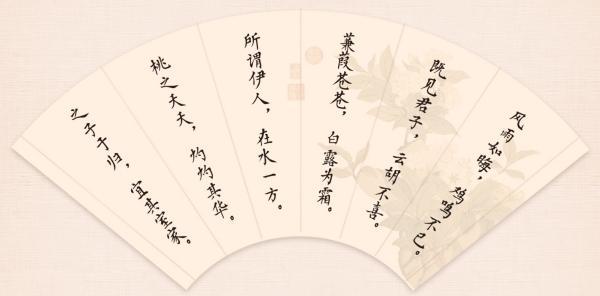 风雨如晦，鸡鸣不已。
既见君子，云胡不喜。
蒹葭苍苍，白露为霜。
所谓伊人，在水一方。
桃之夭夭，灼灼其华。
之子于归，宜其室家。